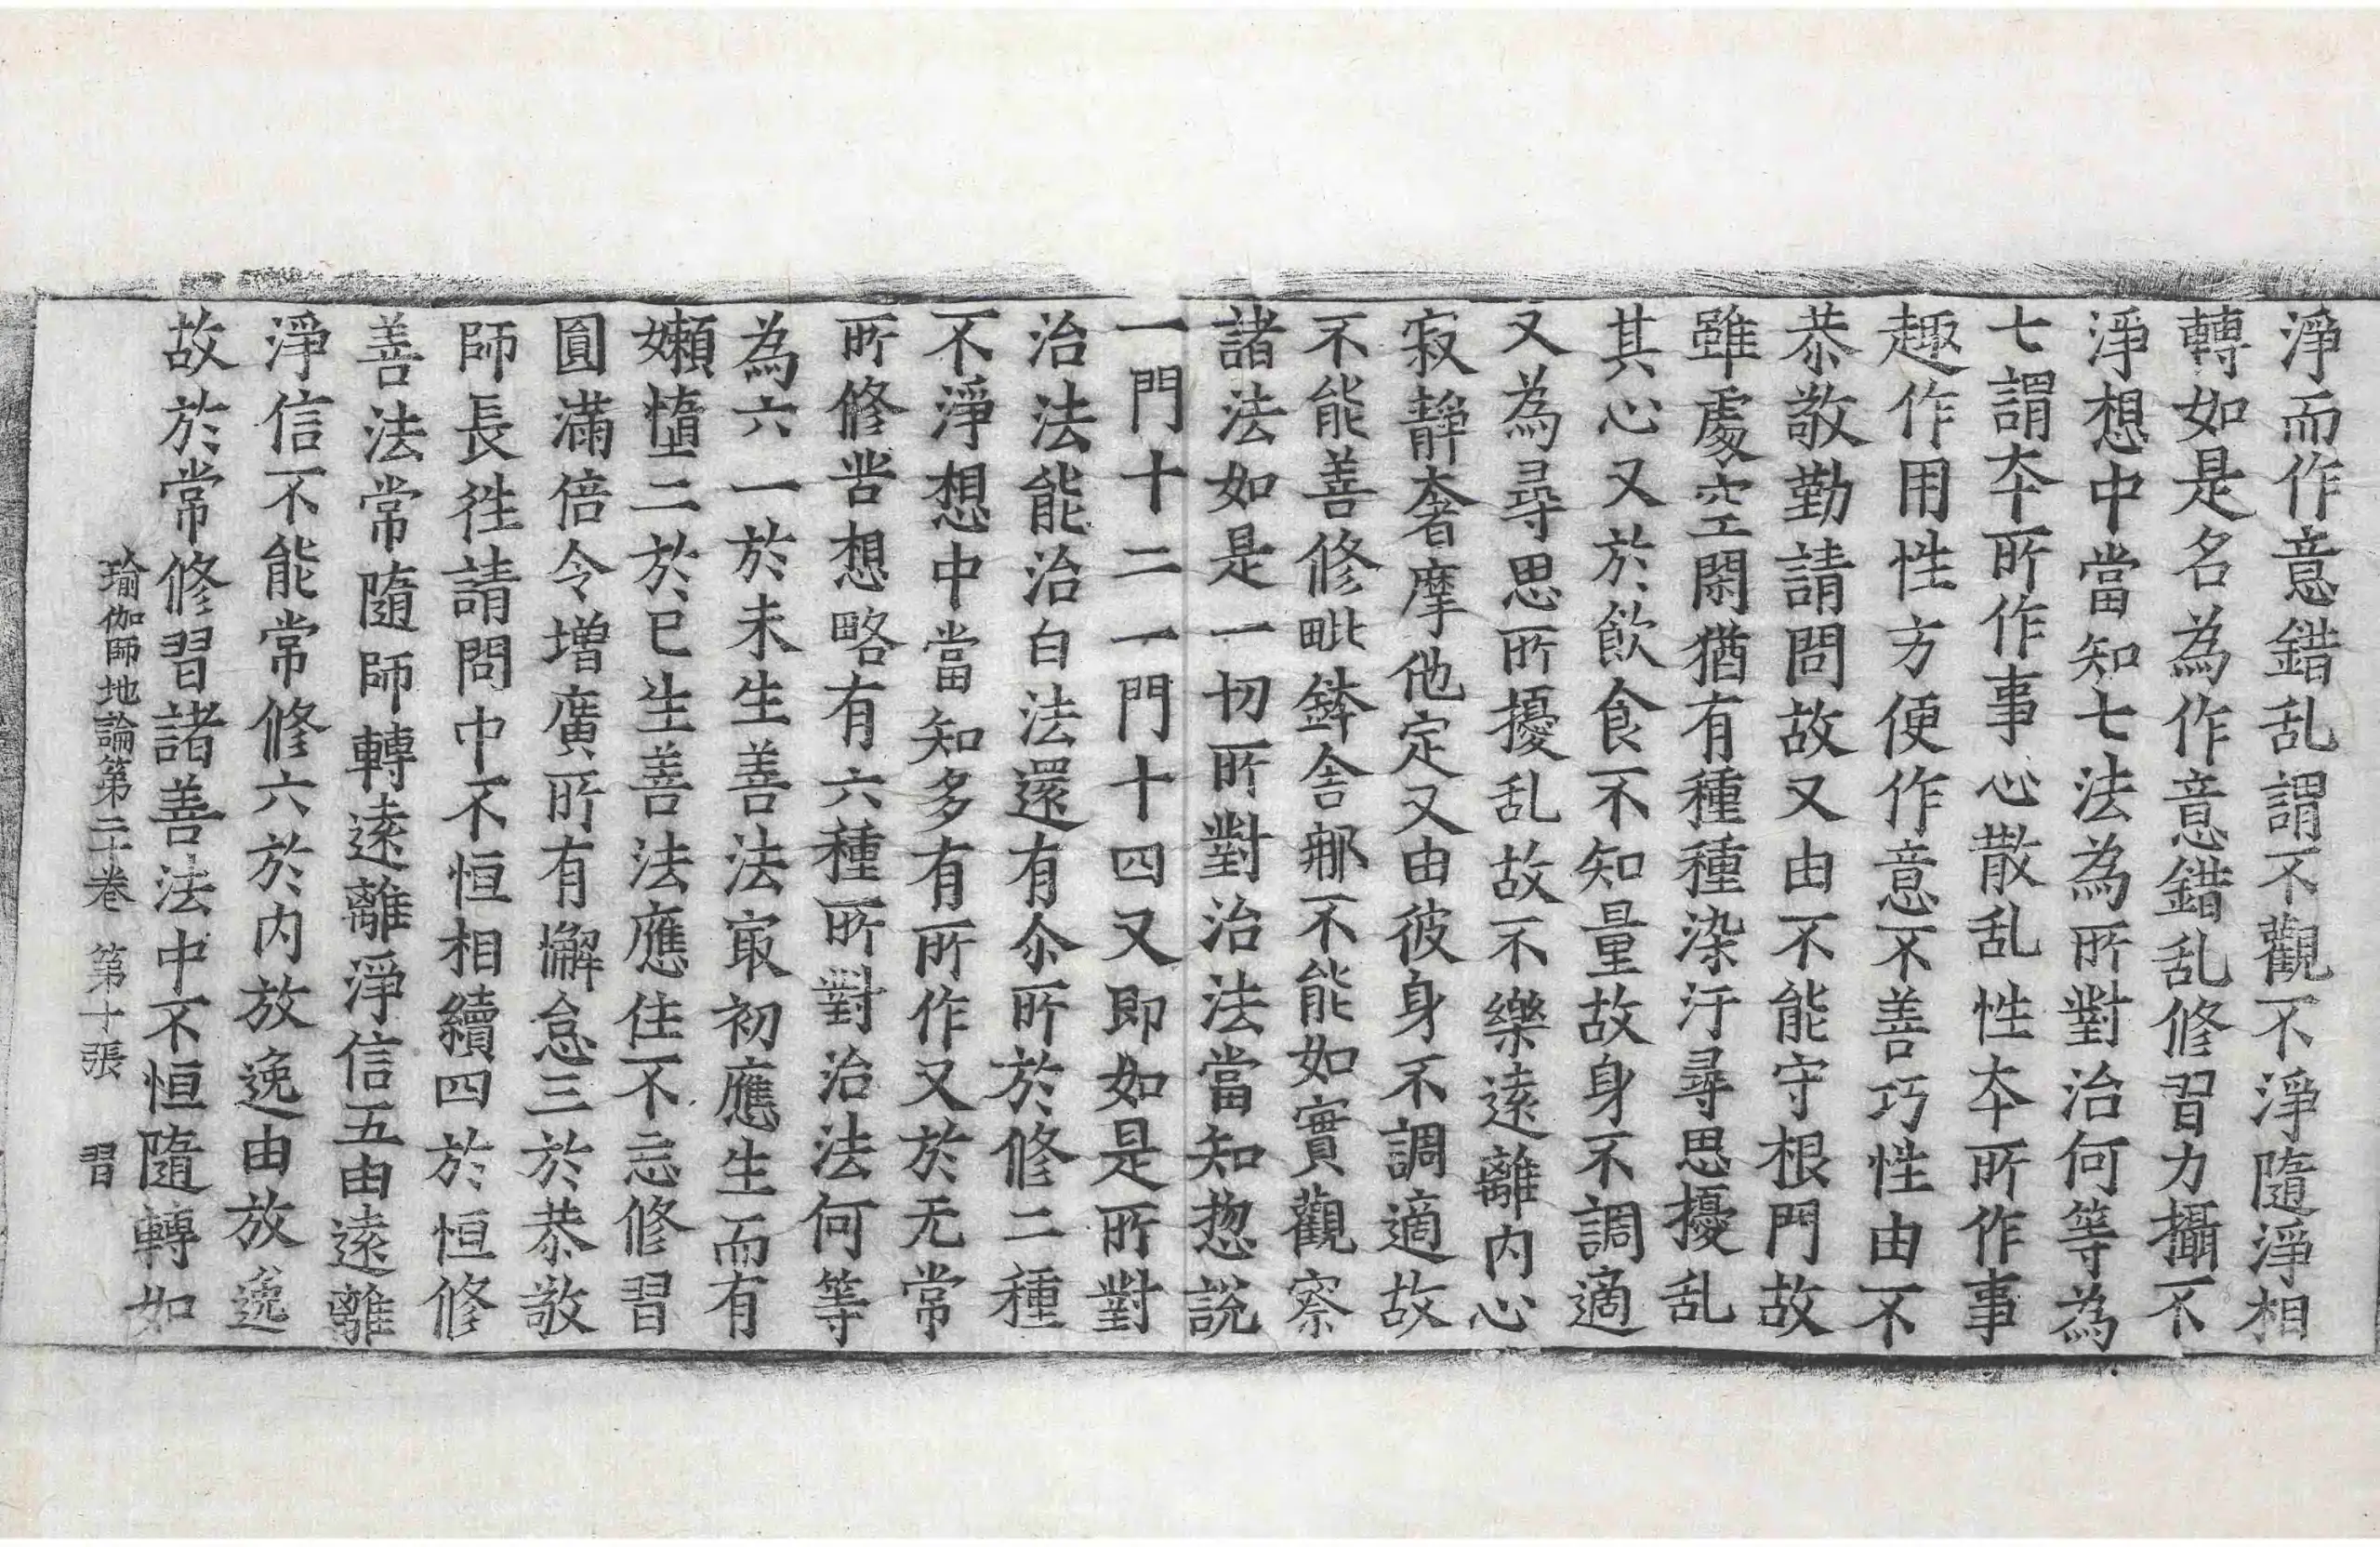 淨而作意錯乱謂不觀不淨隨淨相
轉如是名為作意錯乱修習力攝不
淨想中當知七法為所對治何等為
七謂夲所作事心散乱性夲所作事
趣作用性方便作意不善巧性由不
恭敬勤請問故又由不能守根門故
雖處空閑猶有種種染汙尋思擾乱
其心又於飲食不知量故身不調適
又為尋思所擾乱故不樂遠離内心
寂靜奢摩他定又由彼身不調適故
不能善修毗鉢舍那不能如實觀察
諸法如是一切所對治法當知惣說
一門十二一門十四又即如是所對
治法能治白法還有尒所於修二種
不淨想中當知多有所作又於无常
所修苦想略有六種所對治法何等
為六一於未生善法㝡初應生而有
嬾惰二於已生善法應住不忘修習
圓滿倍令增廣所有懈怠三於恭敬
師長徃請問中不恒相續四於恒修
善法常隨師轉遠離淨信五由遠離
淨信不能常修六於内放逸由放逸
故於常修習諸善法中不恒隨轉如
瑜伽師地論第二十卷 第十張 習